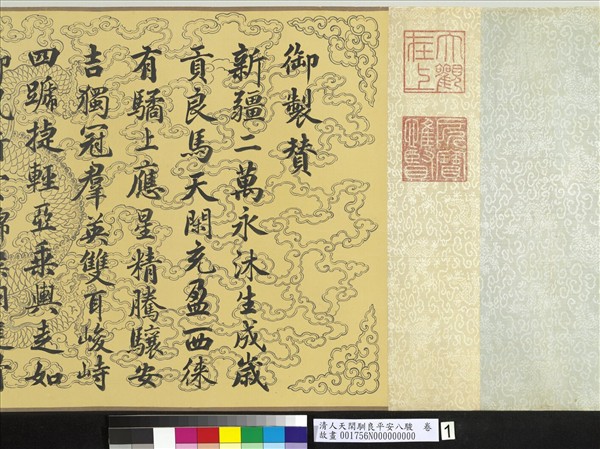 大觀在上
所寶惟賢
御製贊
新疆二萬永沐生成歲
貢良馬天閑充盈西徠
有驕上應星精騰驤安
吉獨冠羣英雙耳峻峙
四蹏捷輕亞乘輿走如
清人天閑馴良平安八駿 卷
故畫 001756N000000000
1